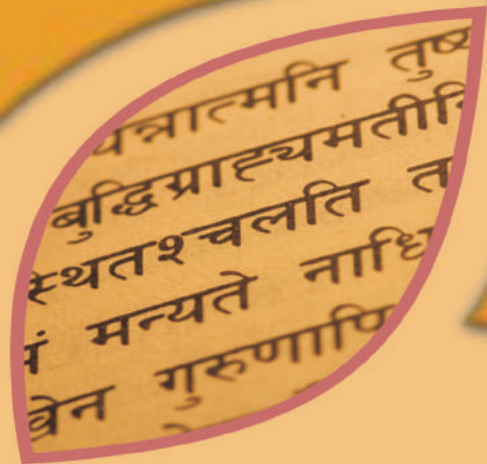 यन्नात्मनि तुष्य
बुद्धिग्राह्यमतीनि
स्थितश्चलति त
मन्यते नाधि
गुरुणापि